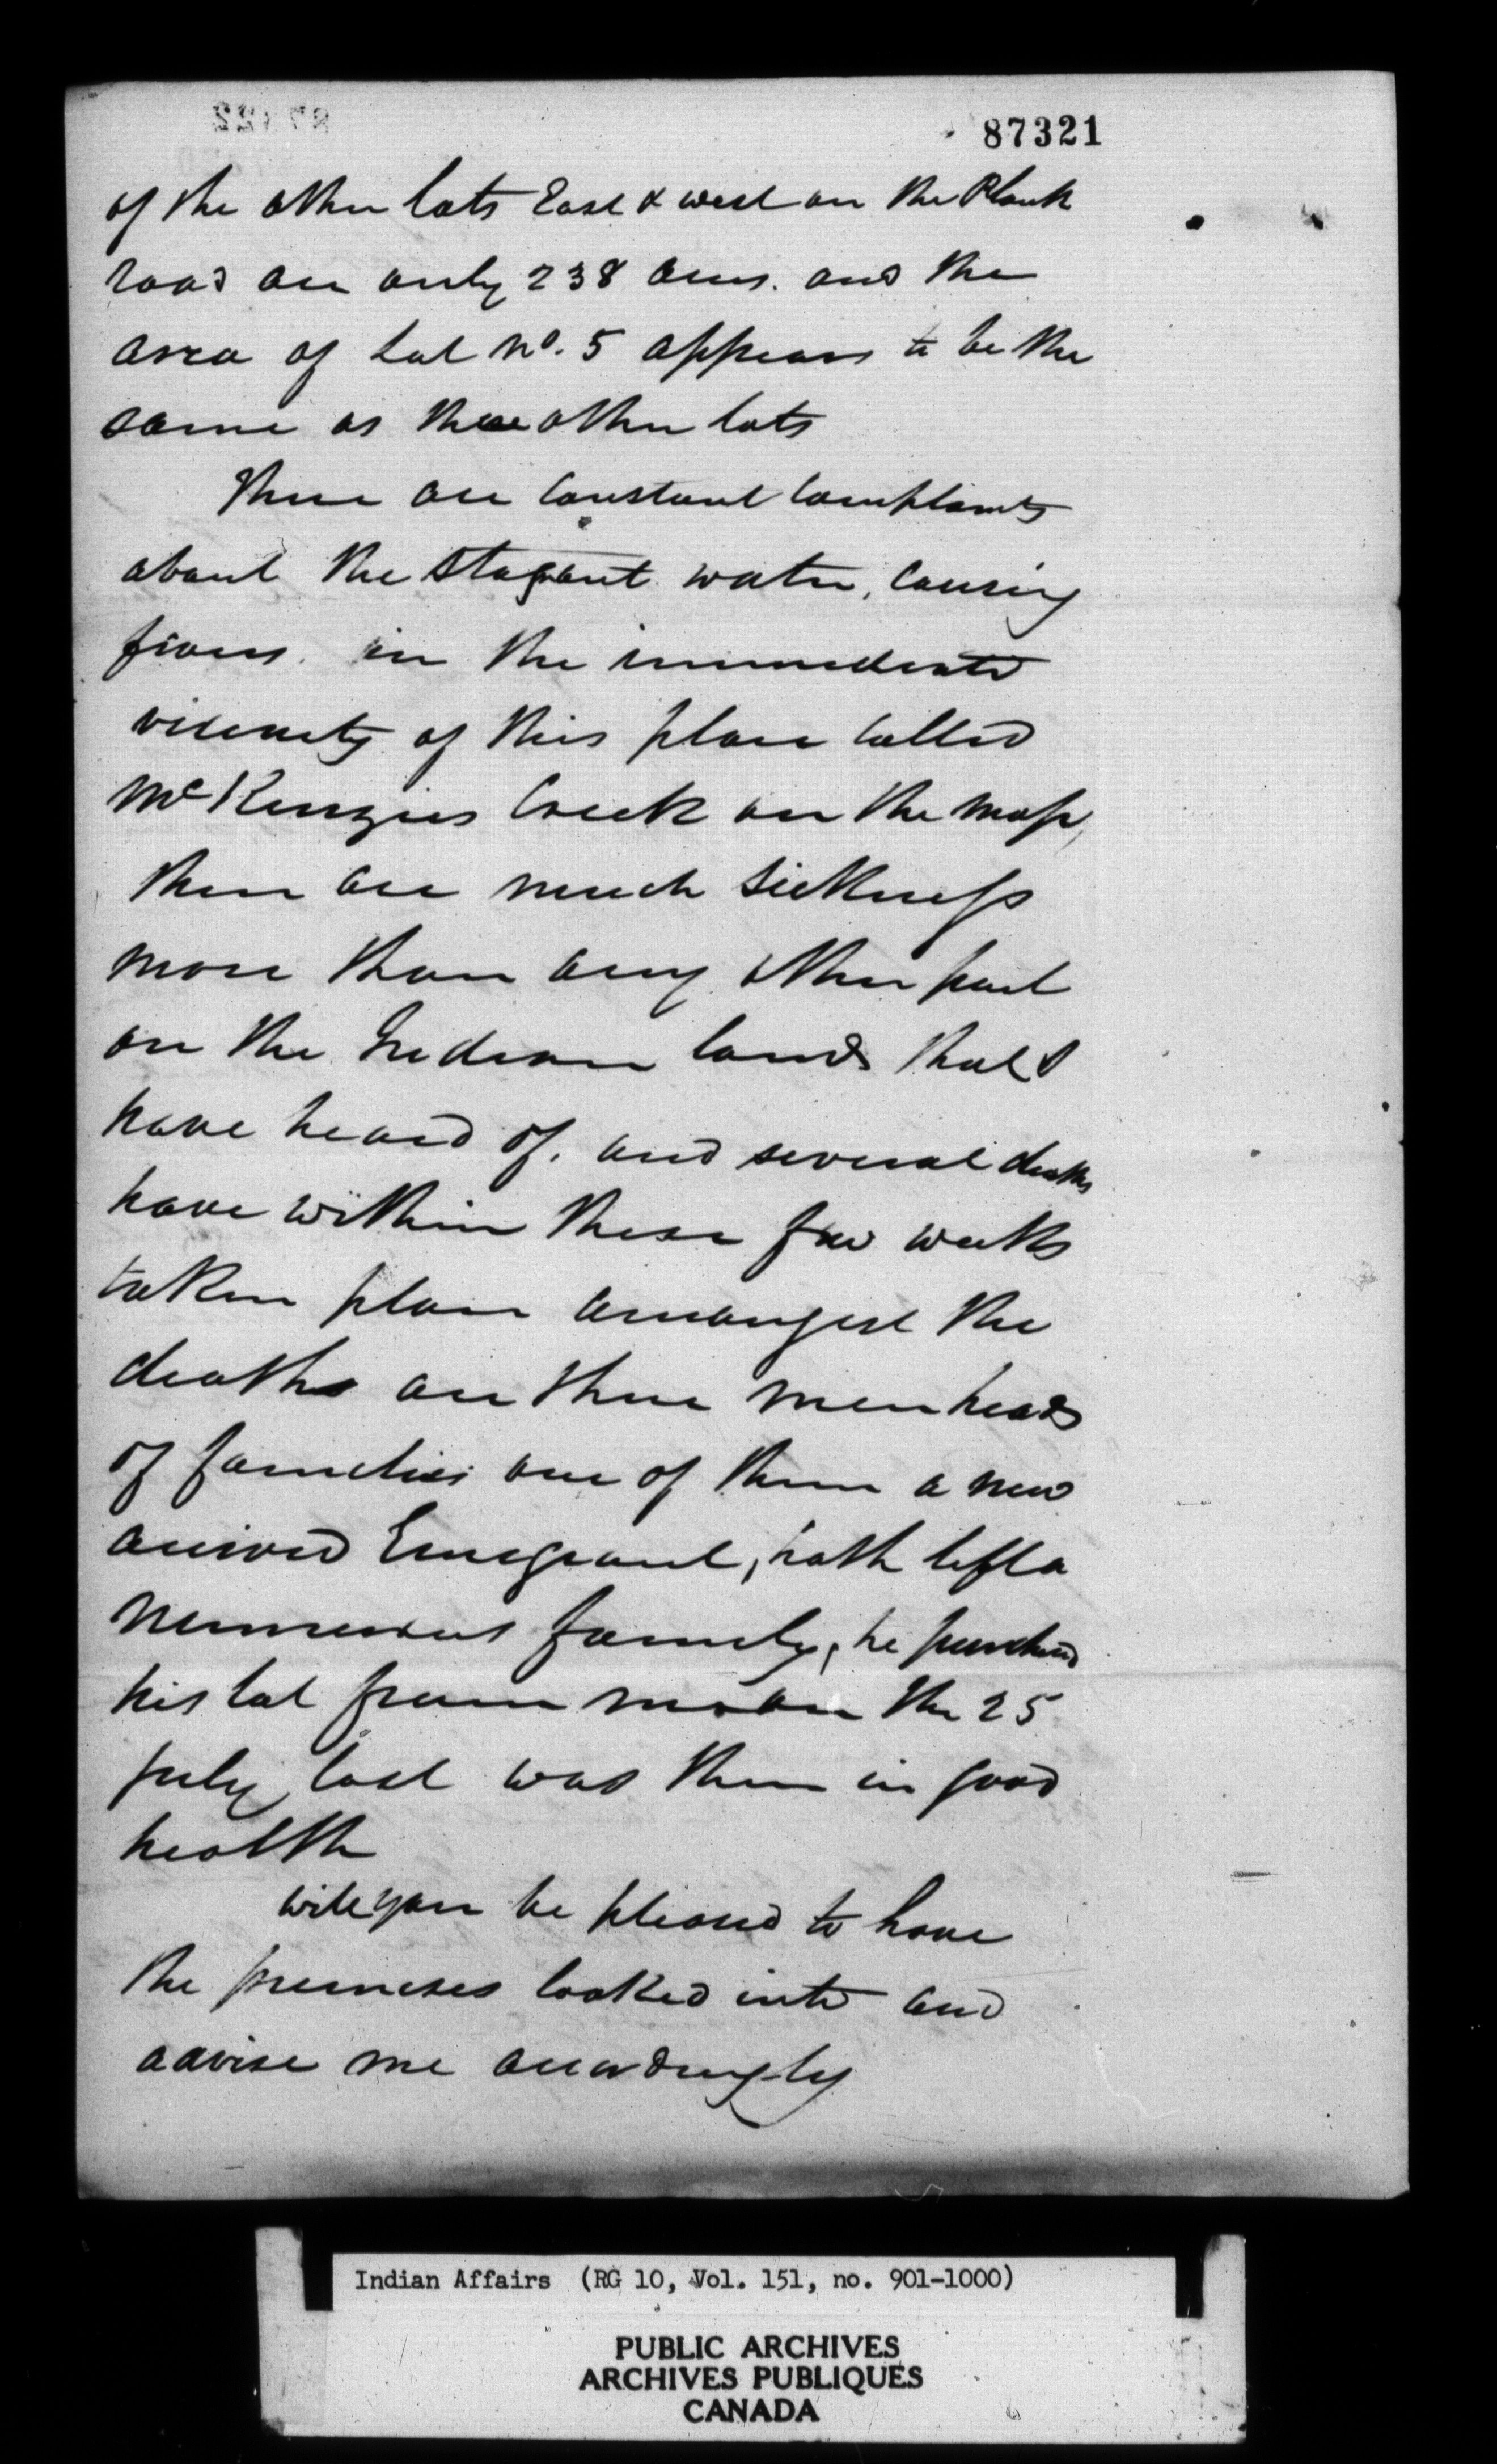 87321
of the other lots East & west on the Plank
road are only 238 acres. and the
area of Lot No. 5 appears to be the
same as these other lots
There are constant complaints
about the stagant water, causing
fevers. in the immediate
vicenety of this place called
McKenzies Creek on the map,
there are much sickness
more than any other part
on the Indian lands that I
have heard of. and several deaths
have within these few weeks
taken place amongest the
deaths are three men heads
of families one of them a new
arrived Emegrant, hath left a
numerous famely, he purchased
his lot from me on the 25
July last was then in good
health
will you be pleased to have
the premeses looked into and
advise me accordingly
Indian Affairs (RG 10, Vol. 151, no. 901-1000)
PUBLIC ARCHIVES
ARCHIVES PUBLIQUES
CANADA